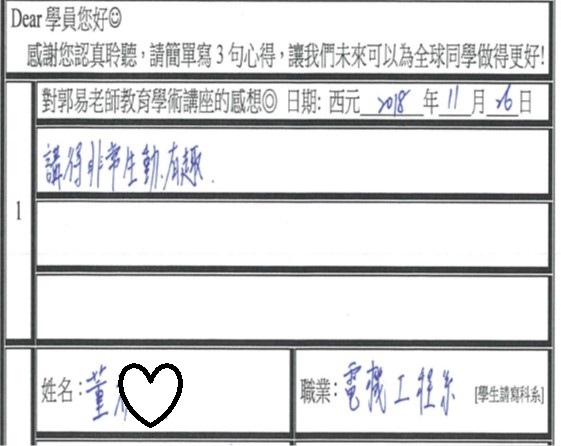 Dear 學員您好☺
感謝您認真聆聽，請簡單寫 3 句心得，讓我們未來可以為全球同學做得更好!
對郭易老師教育學術講座的感想◎ 日期: 西元 2018 年 11 月 26 日
講得非常生動、有趣.
1
姓名: 董
職業: 電機工程系 [學生請寫科系]